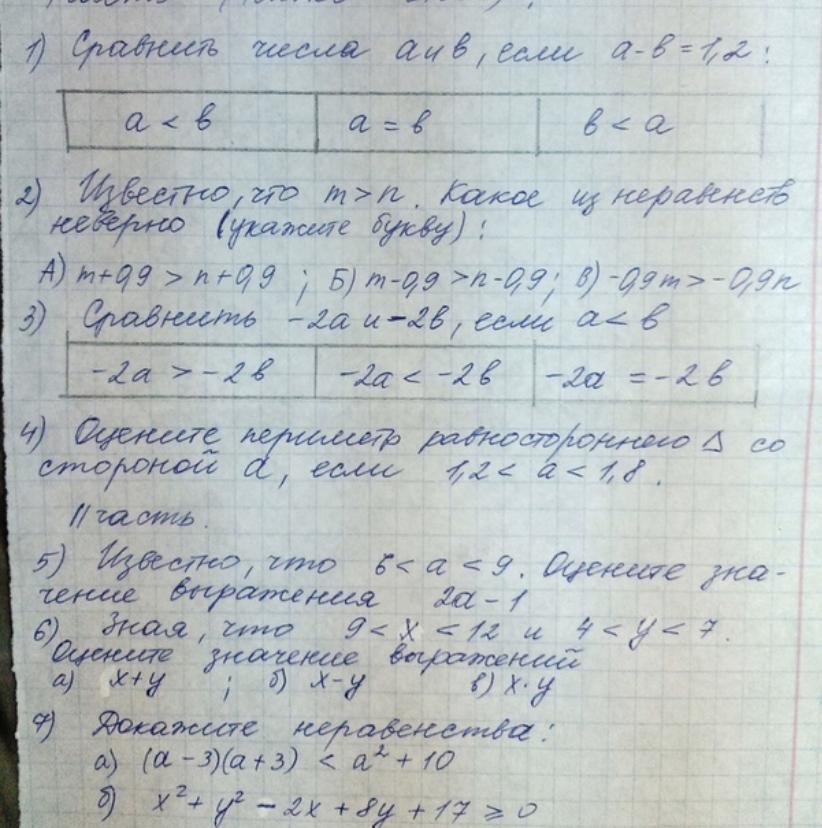 1) Сравнить числа а и в, если а-в=1,2:
а < в а = в в < а
2) Известно, что m>n. Какое из неравенств
неверно (укажите букву):
А) m+0,9 > n+0,9 ; Б) m-0,9 >n-0,9; В) -0,9m>-0,9n
3) Сравнить -2а и -2в, если а< в
-2а > -2в -2а < -2в -2а = -2в
4) Оцените периметр равностороннего Δ со
стороной а, если 1,2< а < 1,8.
II часть.
5) Известно, что 6< а < 9. Оцените зна-
чение выражения 2а-1
6) Зная, что 9 < x < 12 и 4 < y < 7.
Оцените значение выражений
а) x+y ; б) x-y в) x·y
7) Докажите неравенства:
а) (а-3)(а+3) < а² + 10
б) x² + y² - 2x + 8y + 17 ⩾ 0